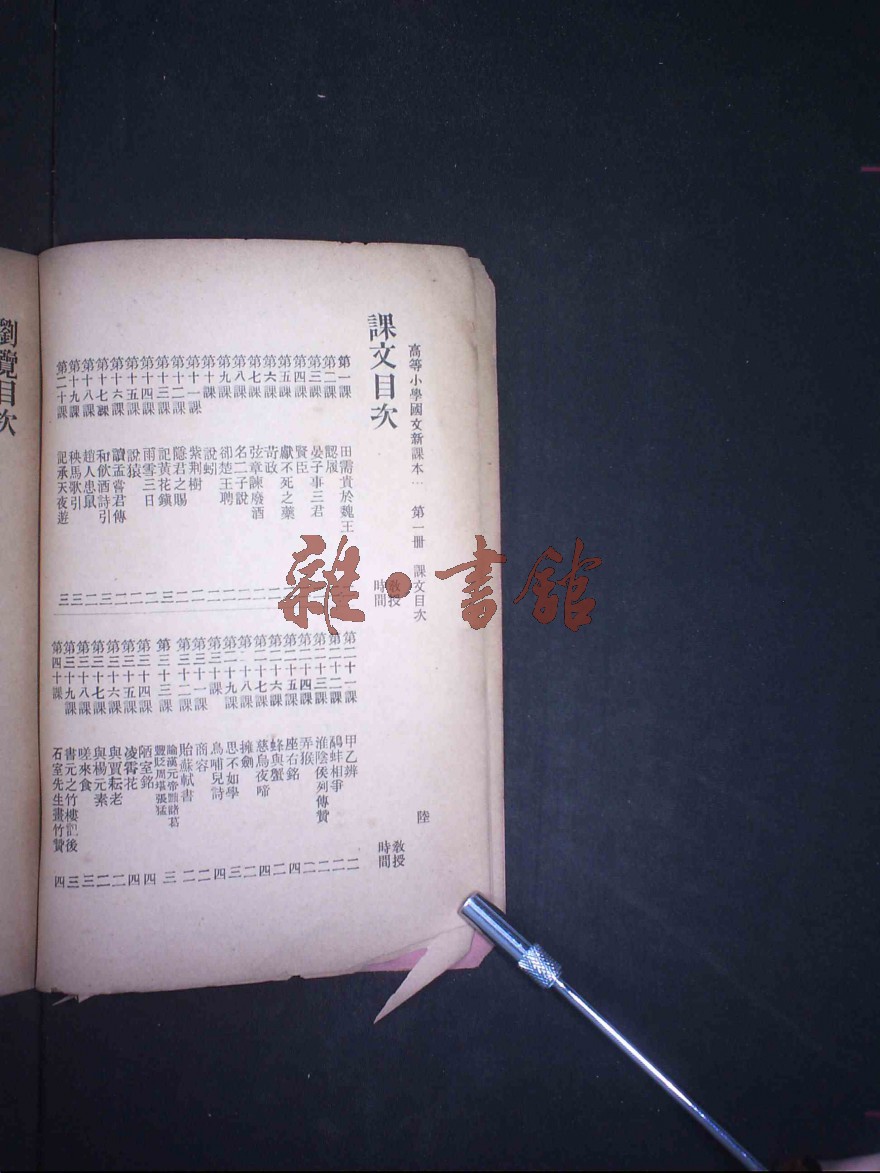 高等小學國文新課本一 第一册 課文目次 陸
課文目次
教授時間
第一課 田需貴於魏王
第二課 認履
第三課 晏子事三君
第四課 賢臣
第五課 獻不死之藥
第六課 苛政
第七課 弦章諫廢酒
第八課 名二子說
第九課 卻楚王聘
第十課 說蚓
第十一課 紫荊樹
第十二課 隱君之賜
第十三課 記黃花鎭
第十四課 雨雪三日
第十五課 說猿
第十六課 讀孟嘗君傳 二
第十七課 和飲酒詩引 三
第十八課 趙人患鼠 二
第十九課 秧馬歌引 三
第二十課 記承天夜遊 三
教授時間
第二十一課 甲乙辨 二
第二十二課 鷸蚌相爭 二
第二十三課 淮陰侯列傳贊 二
第二十四課 弄猴 二
第二十五課 座右銘 四
第二十六課 蜂與蟹 二
第二十七課 慈烏夜啼 四
第二十八課 擁劍 二
第二十九課 思不如學 三
第三十課 烏哺兒詩 四
第三十一課 商容 二
第三十二課 貽蘇軾書 二
第三十三課 論漢元帝黜諸葛豐貶周堪張猛 三
第三十四課 陋室銘 四
第三十五課 凌霄花 四
第三十六課 與賈耘老 二
第三十七課 與楊元素 二
第三十八課 嗟來食 三
第三十九課 書元之竹樓記後 三
第四十課 石室先生畫竹贊 四
瀏覽目次
雜·書館